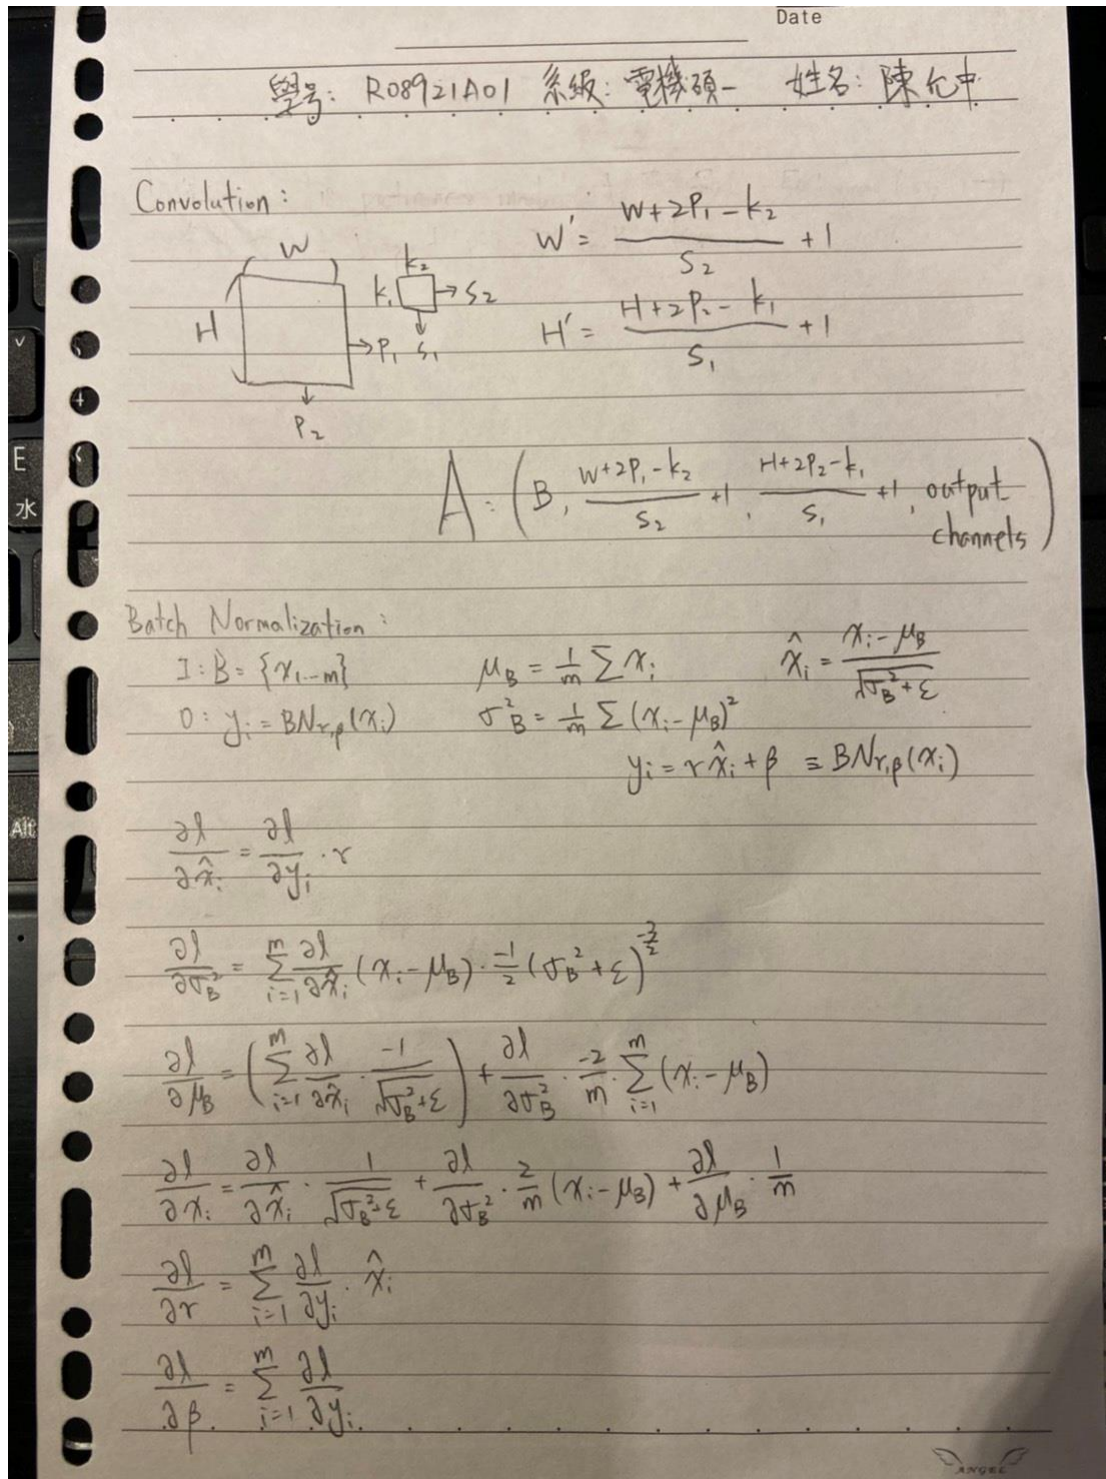 Date
學号: R08921A01 系級: 電機碩一 姓名: 陳允中
Convolution:
W
H
P₁
P₂
k₂
k₁
S₂
S₁
W' = (W+2P₁-k₂)/S₂ + 1
H' = (H+2P₂-k₁)/S₁ + 1
A: (B, (W+2P₁-k₂)/S₂ +1, (H+2P₂-k₁)/S₁ +1, output channels)
Batch Normalization:
I: B = {x₁...m} μ_B = 1/m Σ xᵢ x̂ᵢ = (xᵢ - μ_B)/√(σ_B² + ε)
O: yᵢ = BN_r,β(xᵢ) σ²_B = 1/m Σ (xᵢ - μ_B)²
yᵢ = r x̂ᵢ + β ≡ BN_r,β(xᵢ)
∂l/∂x̂ᵢ = ∂l/∂yᵢ · r
∂l/∂σ_B² = Σ_{i=1}^m ∂l/∂x̂ᵢ (xᵢ - μ_B) · -1/2 (σ_B² + ε)^(-3/2)
∂l/∂μ_B = (Σ_{i=1}^m ∂l/∂x̂ᵢ · -1/√(σ_B² + ε)) + ∂l/∂σ_B² · -2/m · Σ_{i=1}^m (xᵢ - μ_B)
∂l/∂xᵢ = ∂l/∂x̂ᵢ · 1/√(σ_B² + ε) + ∂l/∂σ_B² · 2/m (xᵢ - μ_B) + ∂l/∂μ_B · 1/m
∂l/∂r = Σ_{i=1}^m ∂l/∂yᵢ · x̂ᵢ
∂l/∂β = Σ_{i=1}^m ∂l/∂yᵢ
ANGEL
E
水
Alt